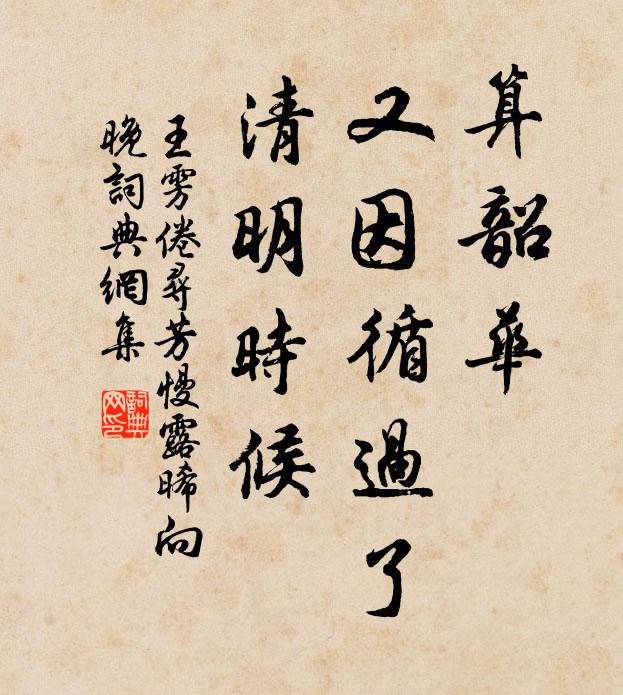 算韶華
又因循過了
清明時候
王雱倦尋芳慢露晞向
晚詞典網集
詞典
网印